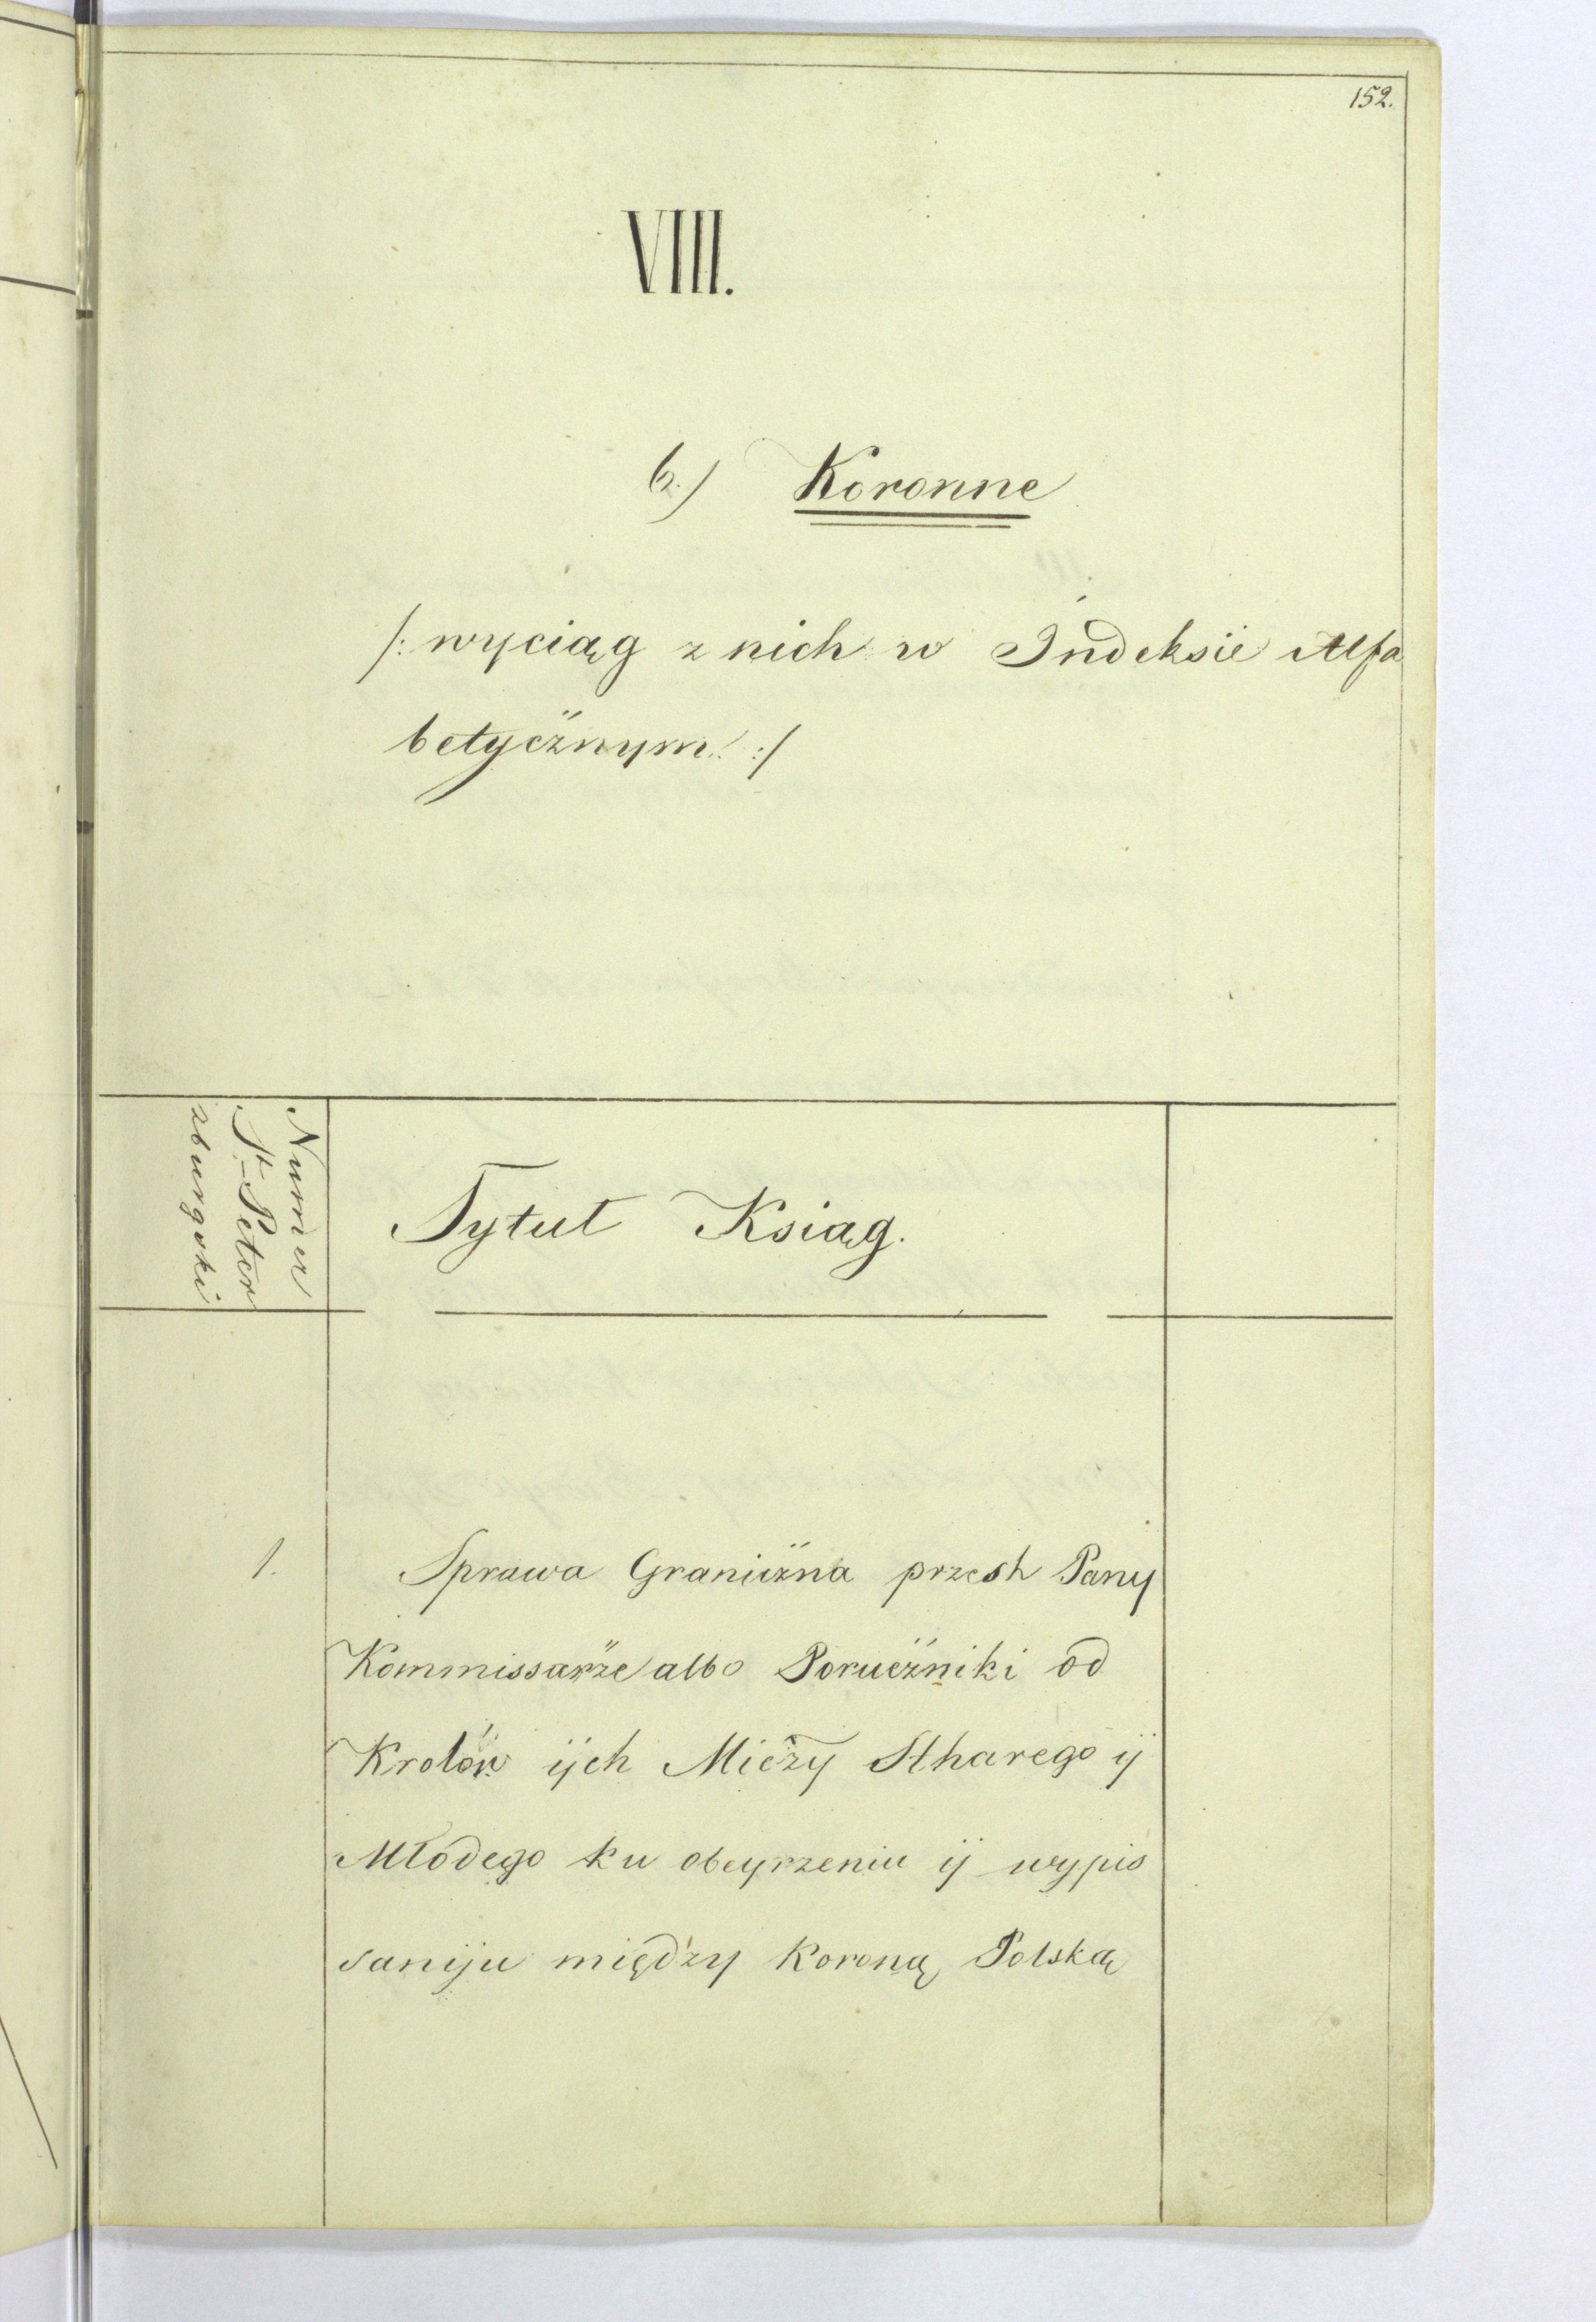 152.
VIII.
b.) Koronne
/: wyciąg z nich w Indeksie Alfa
betycznym :/
Numer
St. Peter
zburgski
Tytuł Ksiąg.
1. Sprawa Graniczna przesh Pany
Kommissarze albo Poruczniki od
Krolów ijch Miczy Stharego ij
Młodego ku obeyrzeniu ij wypis
saniju między Koroną Polską